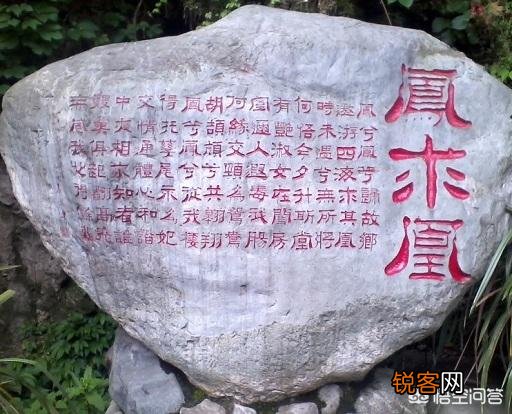 鳳求凰
鳳兮鳳兮歸故鄉
遨游四海求其凰
時未遇兮無所將
何悟今夕升斯堂
有艷淑女在閨房
室邇人遐毒我腸
何緣交頸為鴛鴦
胡頡頏兮共翱翔
鳳兮凰兮從我棲
得托孳尾永為妃
交情通體心和諧
中夜相從知者誰
雙翼俱起翻高飛
無感我思使余悲
锐客网
悟空问答